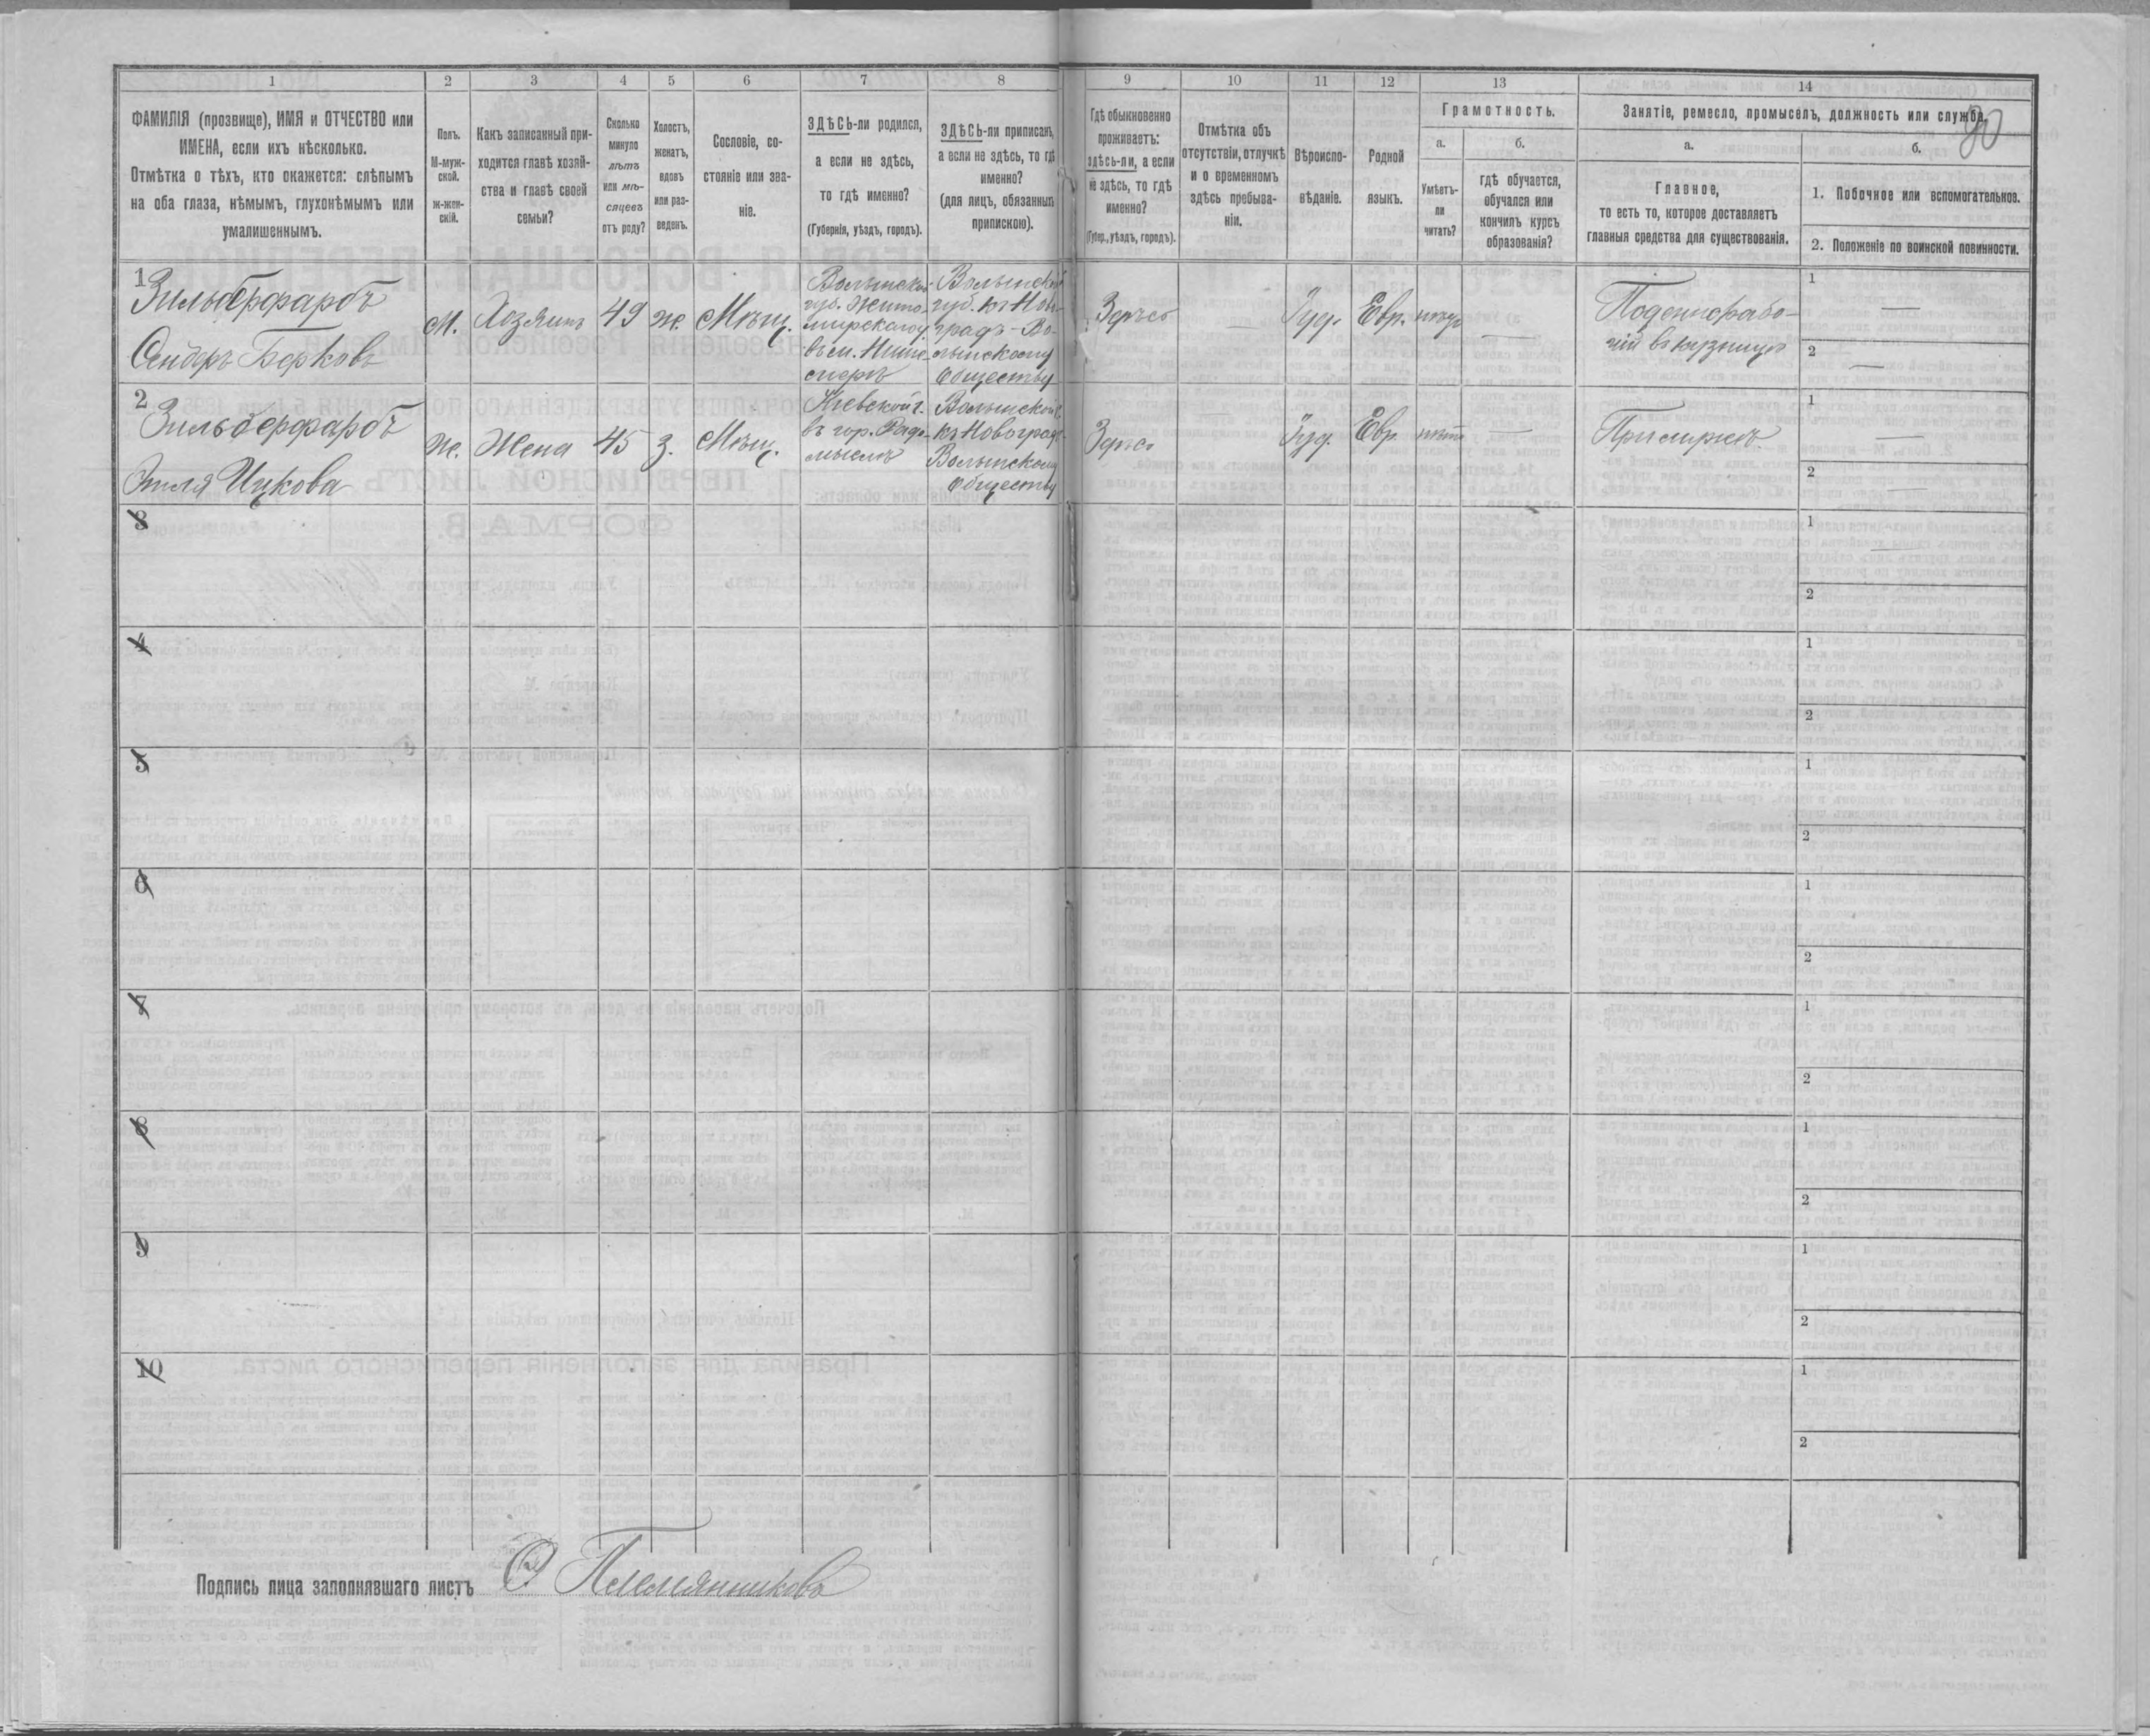 90
1 2 3 4 5 6 7 8 9 10 11 12 13 14
ФАМИЛІЯ (прозвище), ИМЯ и ОТЧЕСТВО или
ИМЕНА, если ихъ нѣсколько.
Отмѣтка о тѣхъ, кто окажется: слѣпымъ
на оба глаза, нѣмымъ, глухонѣмымъ или
умалишеннымъ.
Полъ.
М-муж-
ской.
ж-жен-
скій.
Какъ записанный при-
ходится главѣ хозяй-
ства и главѣ своей
семьи?
Сколько
минуло
лѣтъ
или мѣ-
сяцевъ
отъ роду?
Холостъ,
женатъ,
вдовъ
или раз-
веденъ.
Сословіе, со-
стояніе или зва-
ніе.
ЗДѢСЬ-ли родился,
а если не здѣсь,
то гдѣ именно?
(Губернія, уѣздъ, городъ).
ЗДѢСЬ-ли приписанъ,
а если не здѣсь, то гдѣ
именно?
(для лицъ, обязанныхъ
припискою).
Гдѣ обыкновенно
проживаетъ:
здѣсь-ли, а если
не здѣсь, то гдѣ
именно?
(Губер., уѣздъ, городъ).
Отмѣтка объ
отсутствіи, отлучкѣ
и о временномъ
здѣсь пребыва-
ніи.
Вѣроиспо-
вѣданіе.
Родной
языкъ.
Грамотность.
а.
Умѣетъ-
ли
читать?
б.
гдѣ обучается,
обучался или
кончилъ курсъ
образованія?
Занятіе, ремесло, промыселъ, должность или служба.
а.
Главное,
то есть то, которое доставляетъ
главныя средства для существованія.
б.
1. Побочное или вспомогательное.
2. Положеніе по воинской повинности.
1
Зильберфарбъ
Сендеръ Берковъ
М.
Хозяинъ
49
ж.
Мѣщ.
Волынской
губ. Жито-
мирскаго у.
Волынской
губ. къ Нов-
градъ-Во-
лынскому
Обществу
Здѣсь
—
Іуд.
Евр.
—
Поденнорабо-
чій въ кузницѣ
1 —
2 —
2
Зильберфарбъ
Ицкова
ж.
Жена
45
з.
Мѣщ.
Кіевской г.
въ гор. Радо-
мыслѣ
Волынской г.
къ Новоградъ-
Волынскому
Обществу
Здѣсь
—
Іуд.
Евр.
нѣтъ
—
При мужѣ
1 —
2 —
3
1 —
2
4
1
2
5
1
2
6
1
2
7
1
2
8
1
2
9
1
2
10
1
2
Подпись лица заполнявшаго листъ Племянниковъ